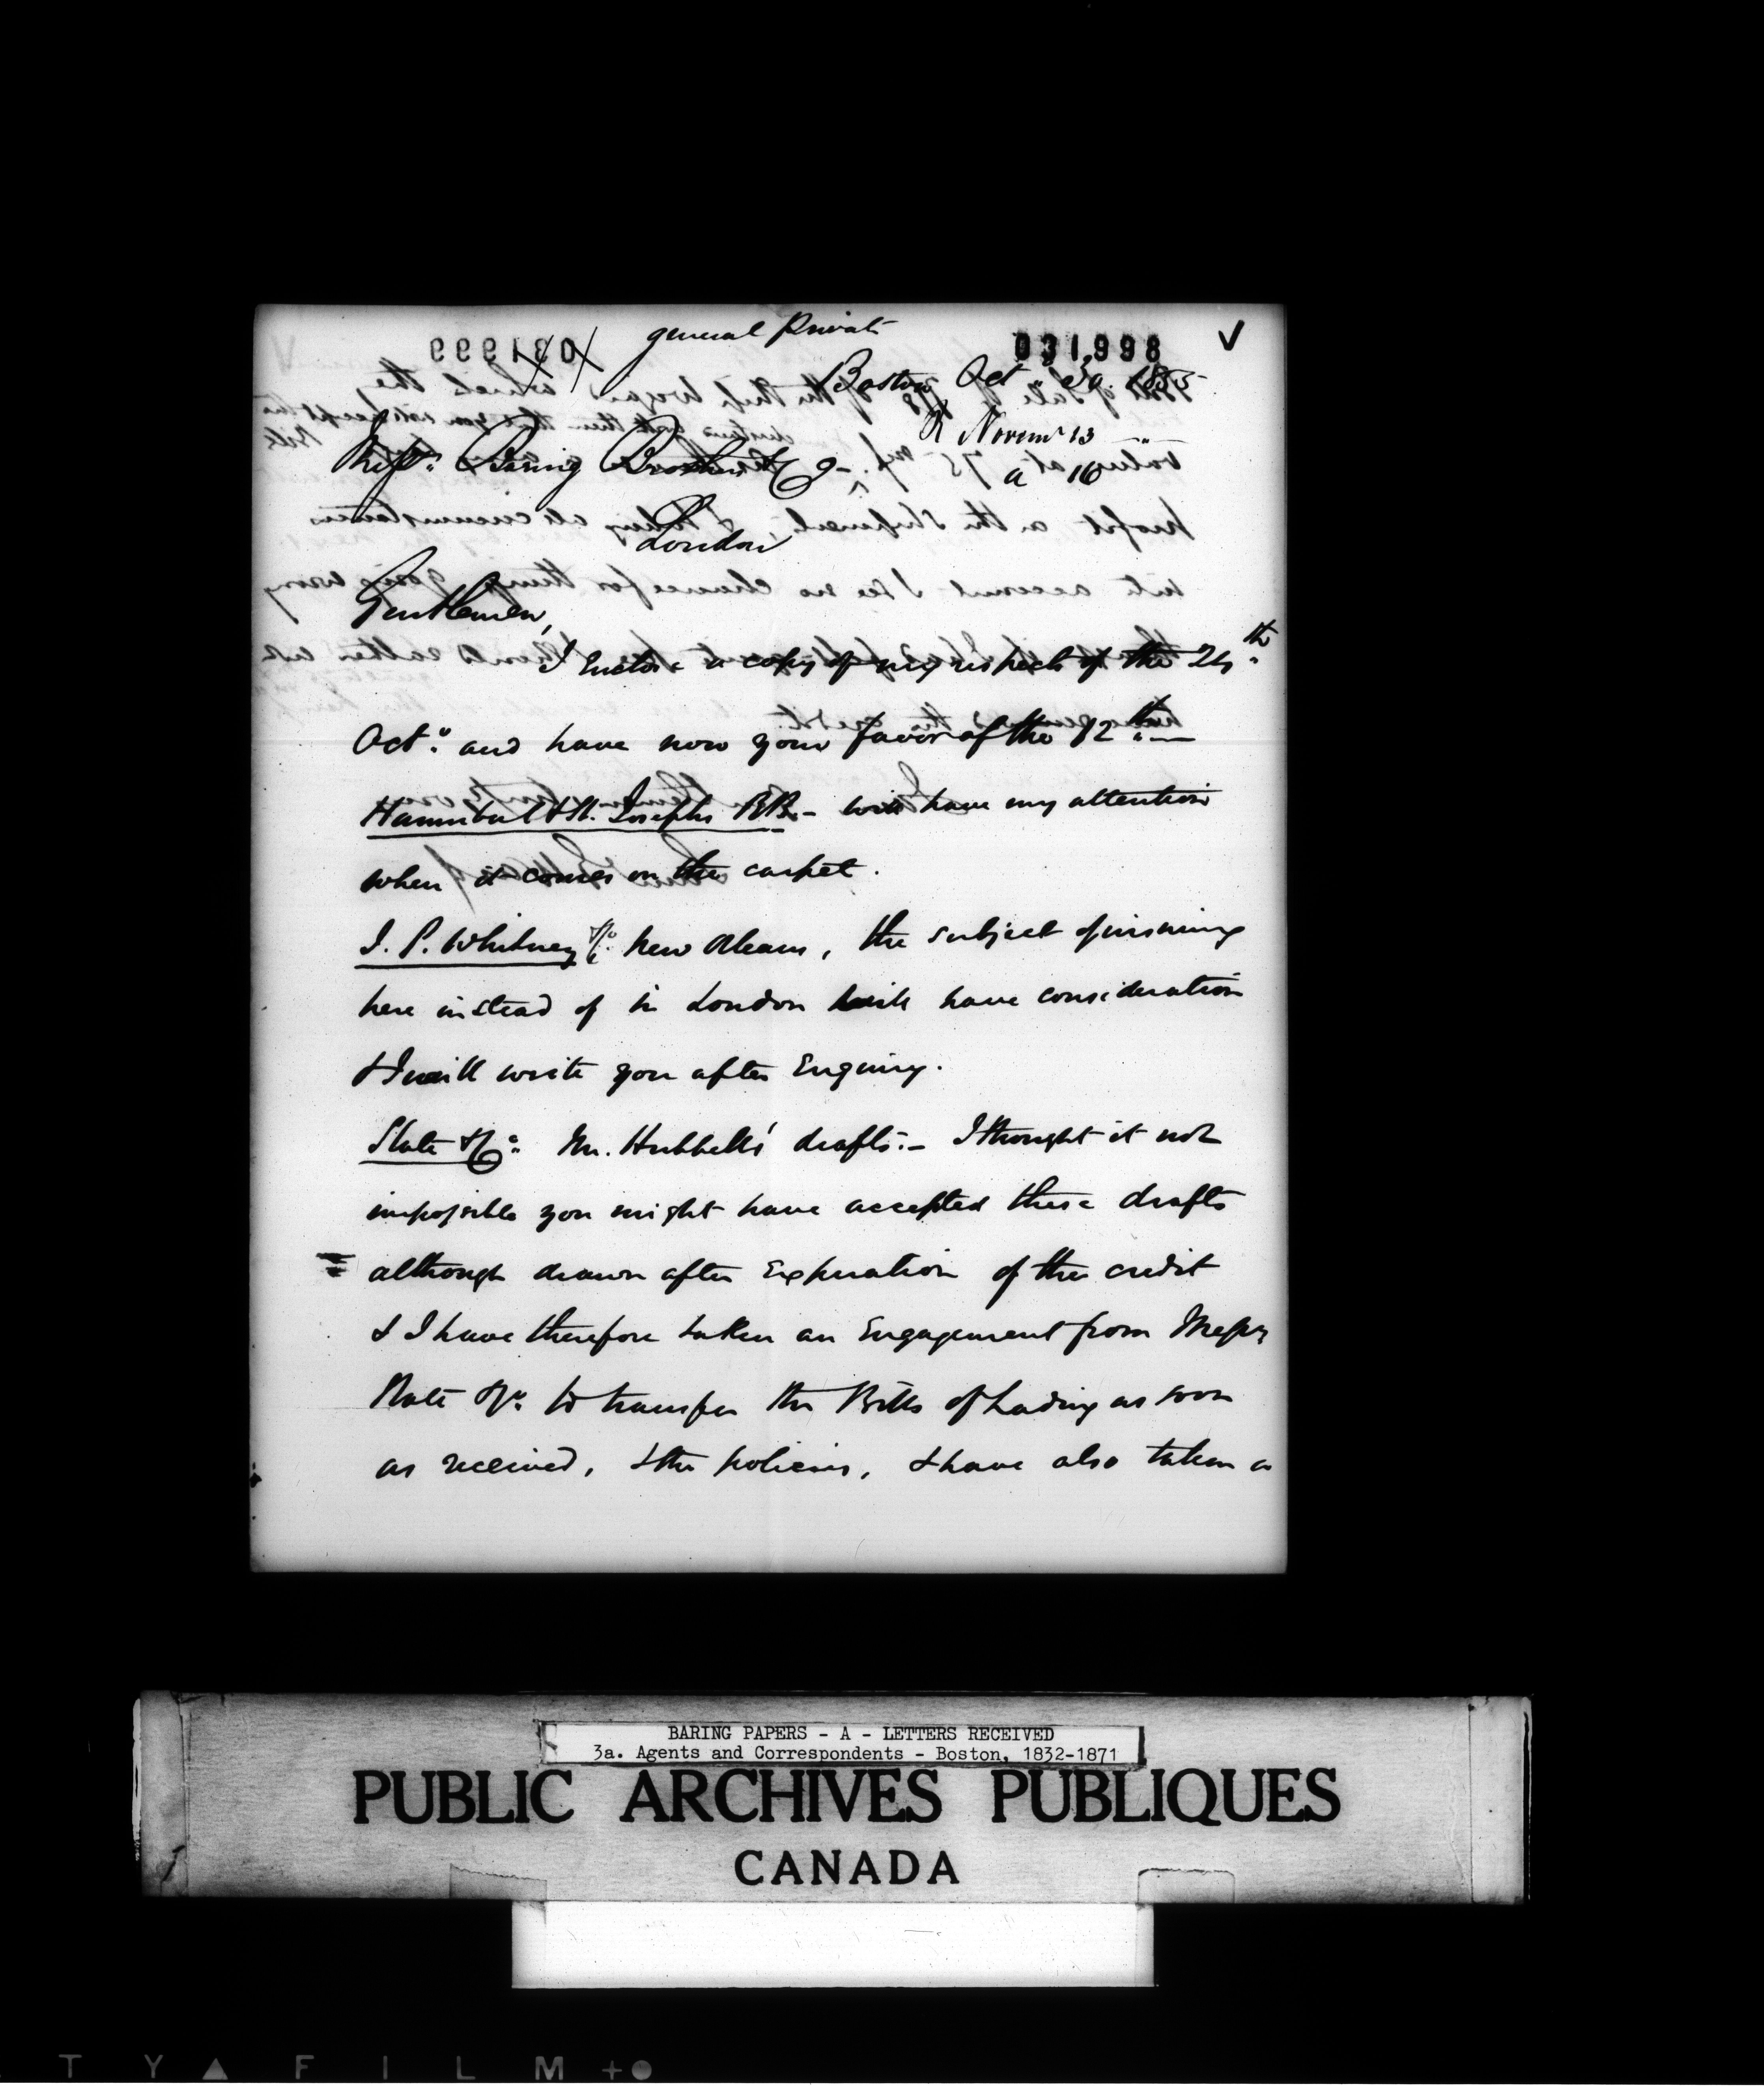 general Private
031998
Boston Oct. 185
R Novem 13
a 16
Messrs. Baring Brothers & Co-
London
Gentlemen,
I Enclose a copy of my respects of the 24th
Oct. and have now your favor of the 12th
Hannibal & St. Josephs RR. - will have my attention
when it comes on the carpet.
I. P. Whitney & Co. New Orleans, the subject of insuring
here instead of in London will have consideration
& I will write you after Enquiry.
State & Co. Mr. Hubbell's drafts:- I thought it not
impossible you might have accepted these drafts
although drawn after Expiration of the credit
& I have therefore taken an Engagement from Messrs
to transfer the Bills of Lading as soon
as received, & the policies, & have also taken a
BARING PAPERS - A - LETTERS RECEIVED
3a. Agents and Correspondents - Boston, 1832-1871
PUBLIC ARCHIVES PUBLIQUES
CANADA
T Y ▲ F I L M + ●